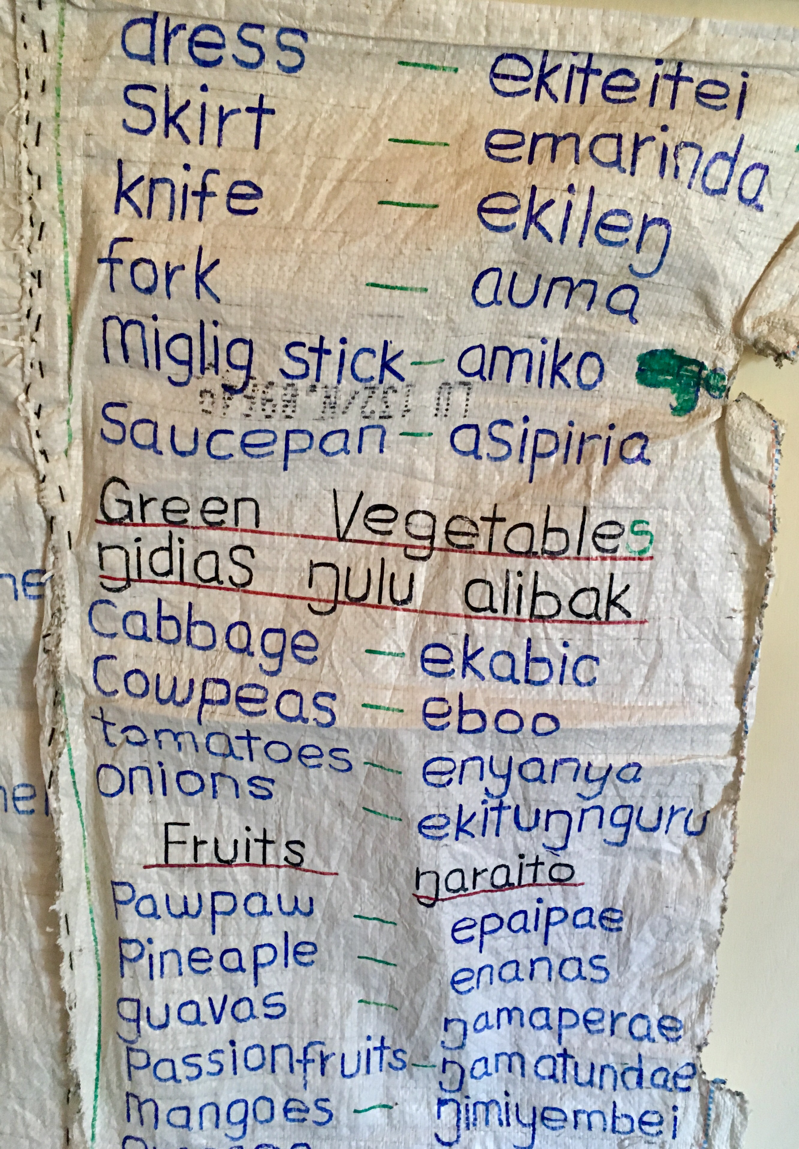 dress — ekiteitei
Skirt — emarinda
knife — ekileŋ
fork — auma
Miglig stick — amiko
Saucepan — asipiria
Green Vegetables
ŋidias ŋulu alibak
Cabbage — ekabic
Cowpeas — eboo
tomatoes — enyanya
onions — ekituŋnguru
Fruits ŋaraito
Pawpaw — epaipae
Pineaple — enanas
guavas — ŋamaperae
Passionfruits — ŋamatundae
Mangoes — ŋimiyembei